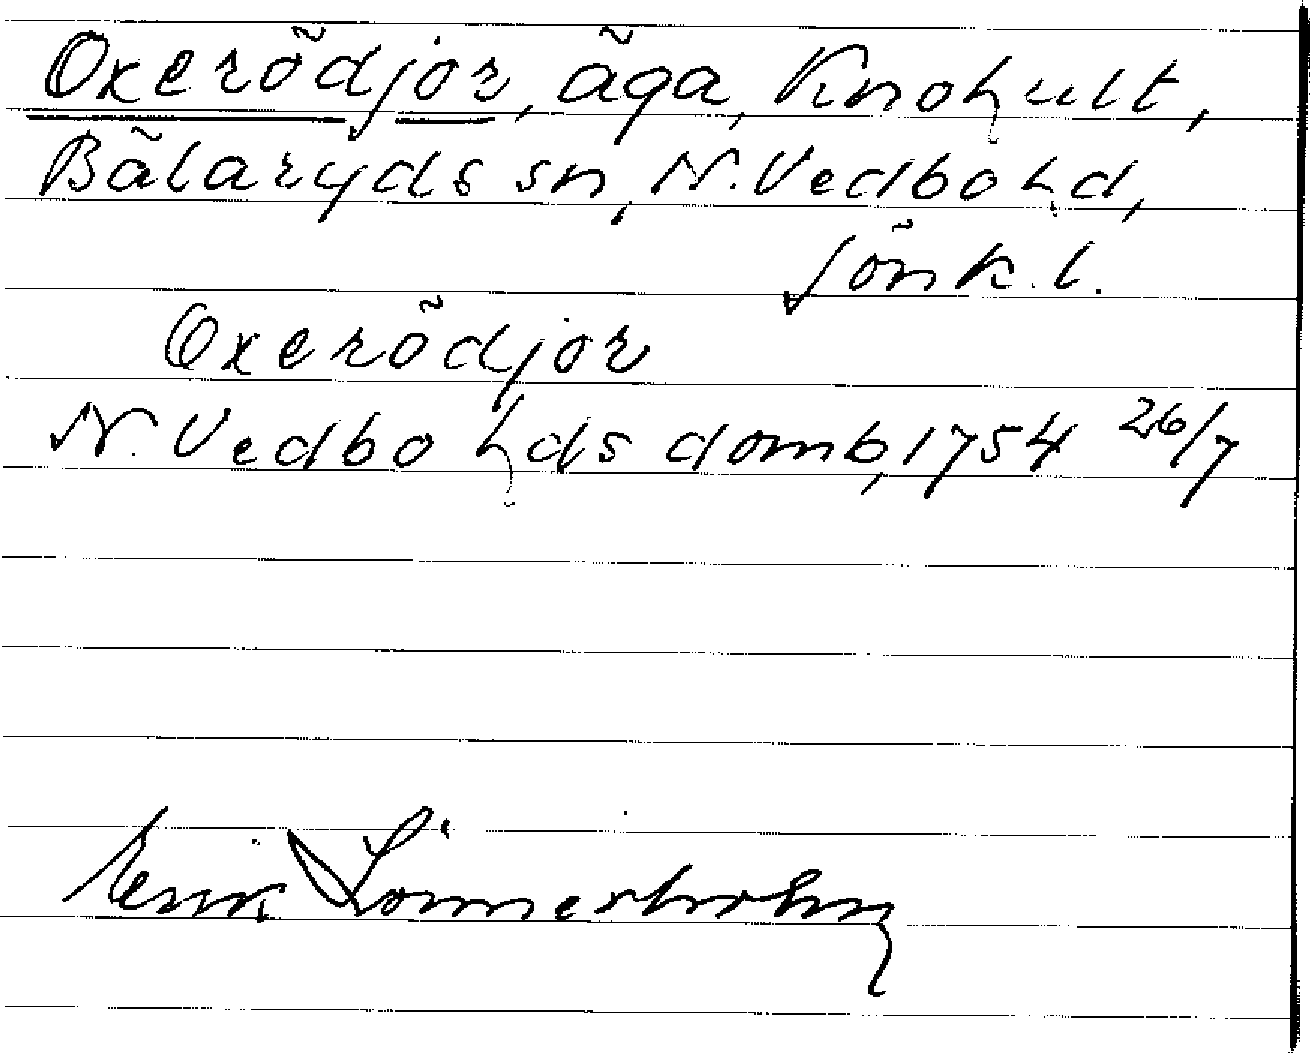 Oxerödjor, äga, Knohult,
Bälaryds sn, N. Vedbo hd,
Jönk. l.
Oxerödjor
N. Vedbo hds domb, 1754 26/7
Erik Lönnerholm